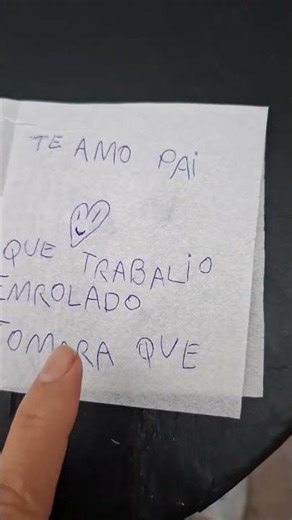 TE AMO PAI
QUE TRABALIO
EMROLADO
TOMARA QUE